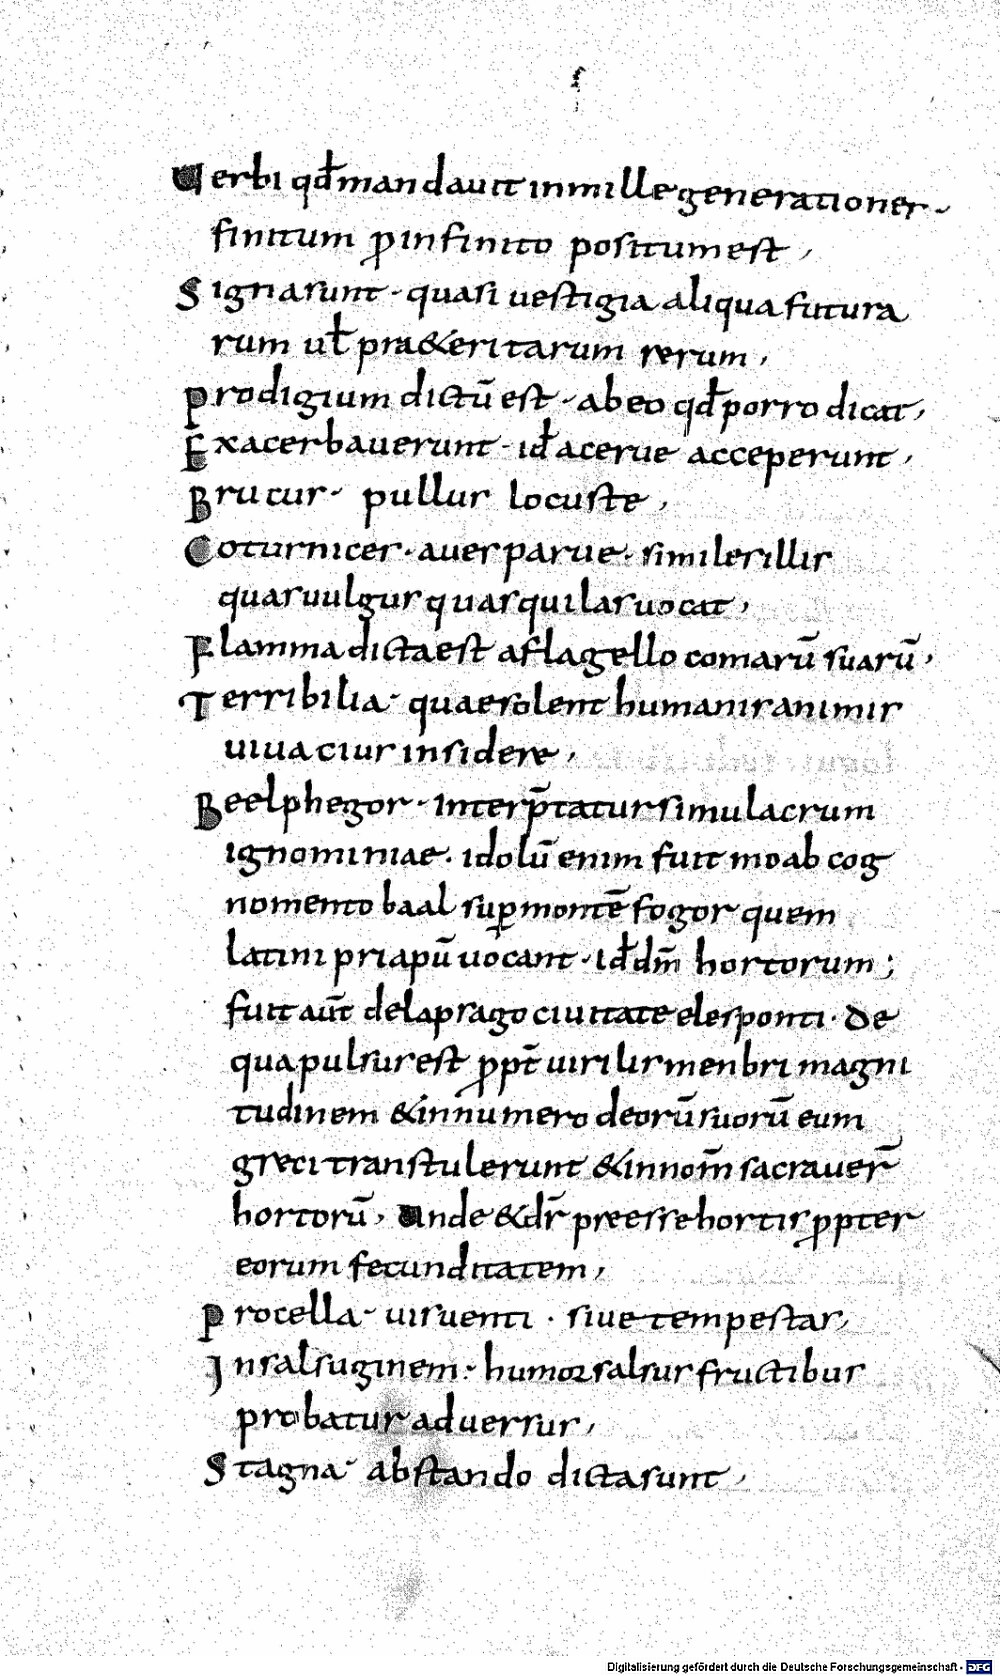 Uerbi qđ mandauit inmille generationes·
finitum ꝓinfinito positum est,
Signa sunt· quasi uestigia aliqua futura
rum uł praeteritarum rerum,
Prodigium dictū est· abeo qđ porro dicat,
Exacerbauerunt· iđ acerue acceperunt,
Brucus· pullus locuste,
Coturnices· aues parue· similes illis
quas uulgus quasquilas uocat,
Flamma dicta est aflagello comarū suarū,
Terribilia· quae solent humanis animis
uiuacius insidere,
Beelphegor· interp̄tatur simulacrum
ignominiae· idolū enim fuit moab cog
nomento baal suꝑ montē fogor quem
latini priapū uocant· iđ dm̄ hortorum;
fuit aūt delaprago ciuitate elesponti· De
qua pulsus est ꝓpt̄ uirilis menbri magni
tudinem &innumero deorū suorū eum
greci transtulerunt &innom̄ sacrauer̄
hortorū, Unde &dr̄ preesse hortis ꝓpter
eorum fecunditatem,
Procella· uis uenti· siue tempestas,
Insalsuginem· humor salsus fructibus
probatur aduersus,
Stagna· abstando dicta sunt,
Digitalisierung gefördert durch die Deutsche Forschungsgemeinschaft - DFG